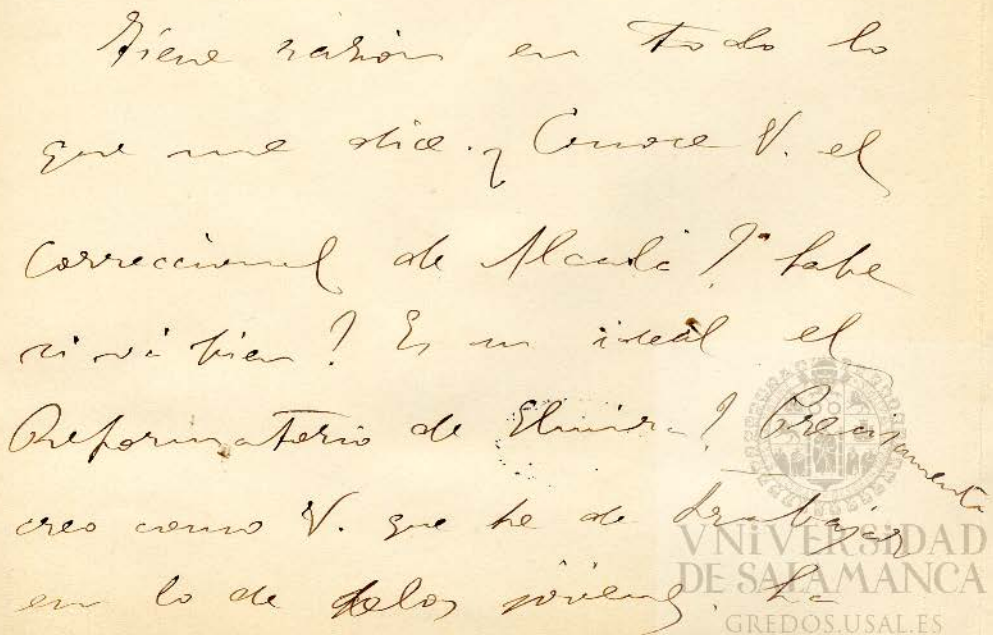 Tiene razón en todo lo
que me dice. ¿Conoce V. el
Correccional de Alcalá? ¿Sabe
si vá bien? Es un ideal el
Reformatorio de Elmira? Precisamente
creo como V. que he de trabajar
en lo de los jóvenes. La
VNiVERSiDAD
DE SALAMANCA
GREDOS.USAL.ES